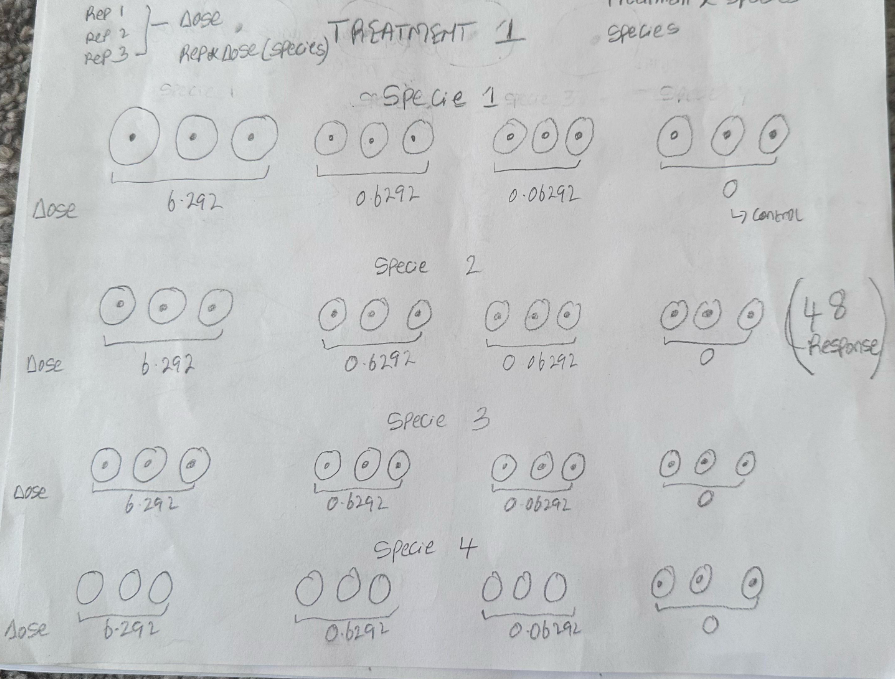 Rep 1
Rep 2
Rep 3
Dose
Rep x Dose (Species)
TREATMENT 1
Species
Specie 1
Dose
6.292
0.6292
0.06292
0
↳ Control
Specie 2
Dose
6.292
0.6292
0 06292
0
(48
Response)
Specie 3
Dose
6.292
0.6292
0.06292
0
Specie 4
Dose
6.292
0.6292
0.06292
0